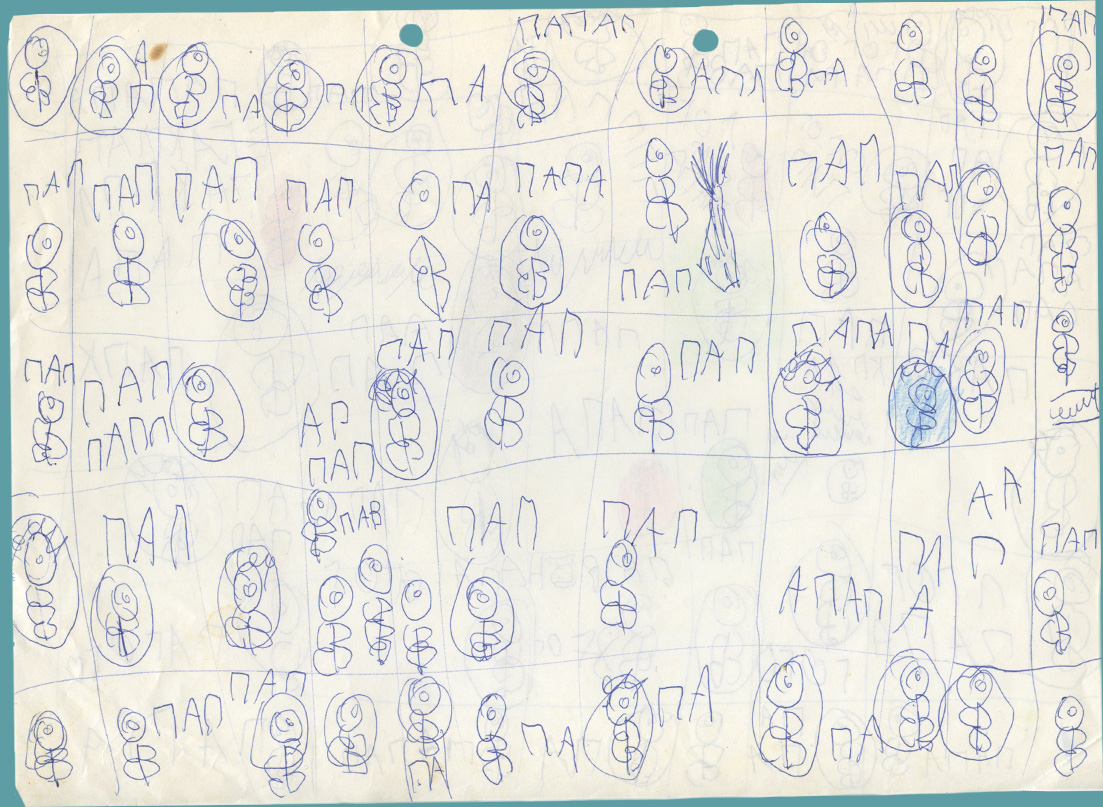 ПАПАП
ПАП
А
П ПА ПА ПА АПП ПА
ПАП ПАП ПАП ПАП ПА ПАПА ПАП ПАП ПАП
ПАП
ПАП
ПАП ПАП ПАП ПАП ПАПА ПА
ПАП ПАП
ПАПП АР
ПАП
А А
ПАП ПАВ ПАП ПАП ПАП
ПА П
А ПАП
А
ПАП
ПАП ПА
ПА ПА
ПА